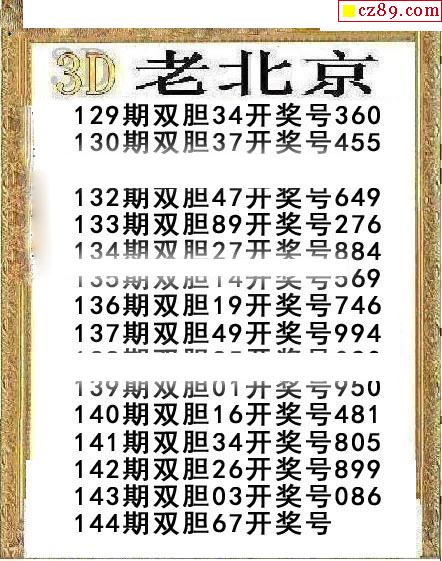 cz89.com
3D 老北京
129期双胆34开奖号360
130期双胆37开奖号455
132期双胆47开奖号649
133期双胆89开奖号276
134期双胆27开奖号884
135期双胆14开奖号569
136期双胆19开奖号746
137期双胆49开奖号994
139期双胆01开奖号950
140期双胆16开奖号481
141期双胆34开奖号805
142期双胆26开奖号899
143期双胆03开奖号086
144期双胆67开奖号